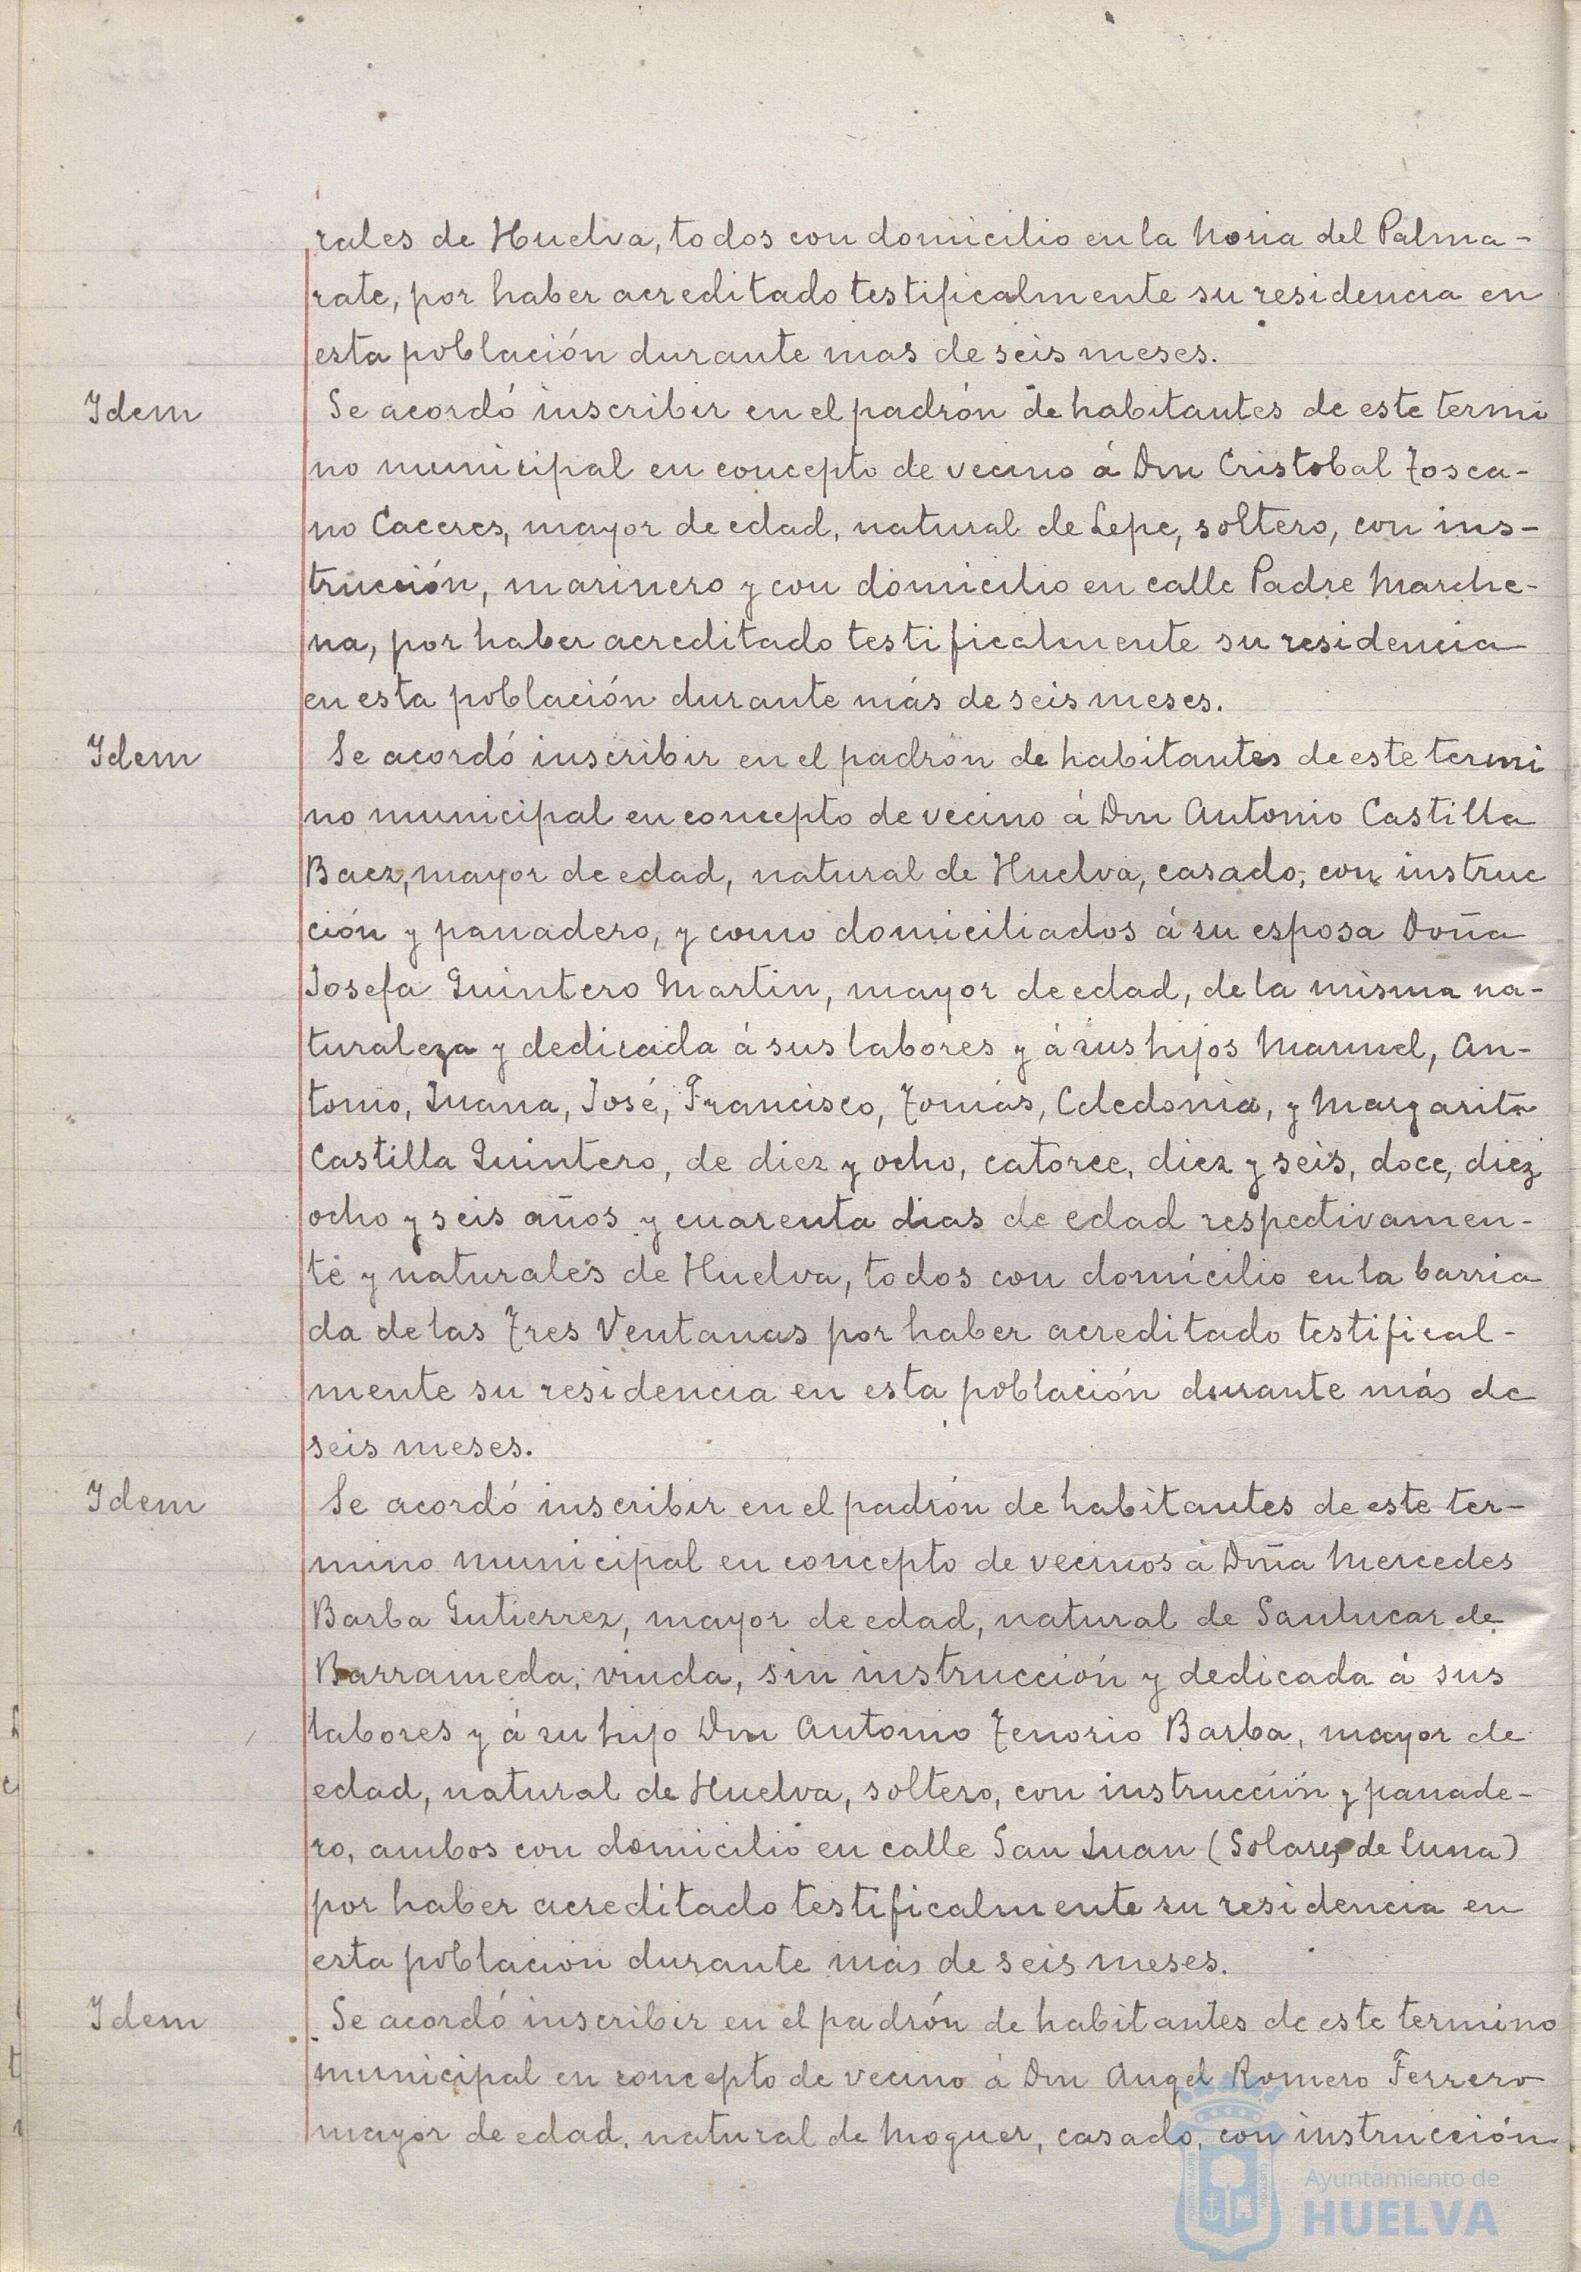 rales de Huelva, todos con domicilio en la Noria del Palma-
rate, por haber acreditado testificalmente su residencia en
esta población durante mas de seis meses.
Idem
Se acordó inscribir en el padrón de habitantes de este termi
no municipal en concepto de vecino á Dn Cristobal Tosca-
no Caceres, mayor de edad, natural de Lepe, soltero, con ins-
trucción, marinero y con domicilio en calle Padre Marche-
na, por haber acreditado testificalmente su residencia
en esta población durante más de seis meses.
Idem
Se acordó inscribir en el padrón de habitantes de este termi
no municipal en concepto de vecino á Dn Antonio Castilla
Baez, mayor de edad, natural de Huelva, casado, con instruc
ción y panadero, y como domiciliados á su esposa Doña
Josefa Quintero Martin, mayor de edad, de la misma na-
turaleza y dedicada á sus labores y á sus hijos Manuel, An-
tonio, Juana, José, Francisco, Tomás, Celedonia, y Margarita
Castilla Quintero, de diez y ocho, catorce, diez y seis, doce, diez
ocho y seis años y cuarenta dias de edad respectivamen-
te y naturales de Huelva, todos con domicilio en la barria
da de las Tres Ventanas por haber acreditado testifical-
mente su residencia en esta población durante más de
seis meses.
Idem
Se acordó inscribir en el padrón de habitantes de este ter-
mino municipal en concepto de vecinos á Dña Mercedes
Barba Gutierrez, mayor de edad, natural de Sanlucar de
Barrameda, viuda, sin instrucción y dedicada á sus
labores y á su hijo Dn Antonio Tenorio Barba, mayor de
edad, natural de Huelva, soltero, con instrucción y panade-
ro, ambos con domicilio en calle San Juan (Solares de Luna)
por haber acreditado testificalmente su residencia en
esta población durante más de seis meses.
Idem
Se acordó inscribir en el padrón de habitantes de este termino
municipal en concepto de vecino á Dn Angel Romero Ferrero
mayor de edad, natural de Moguer, casado, con instrucción
Ayuntamiento de
HUELVA